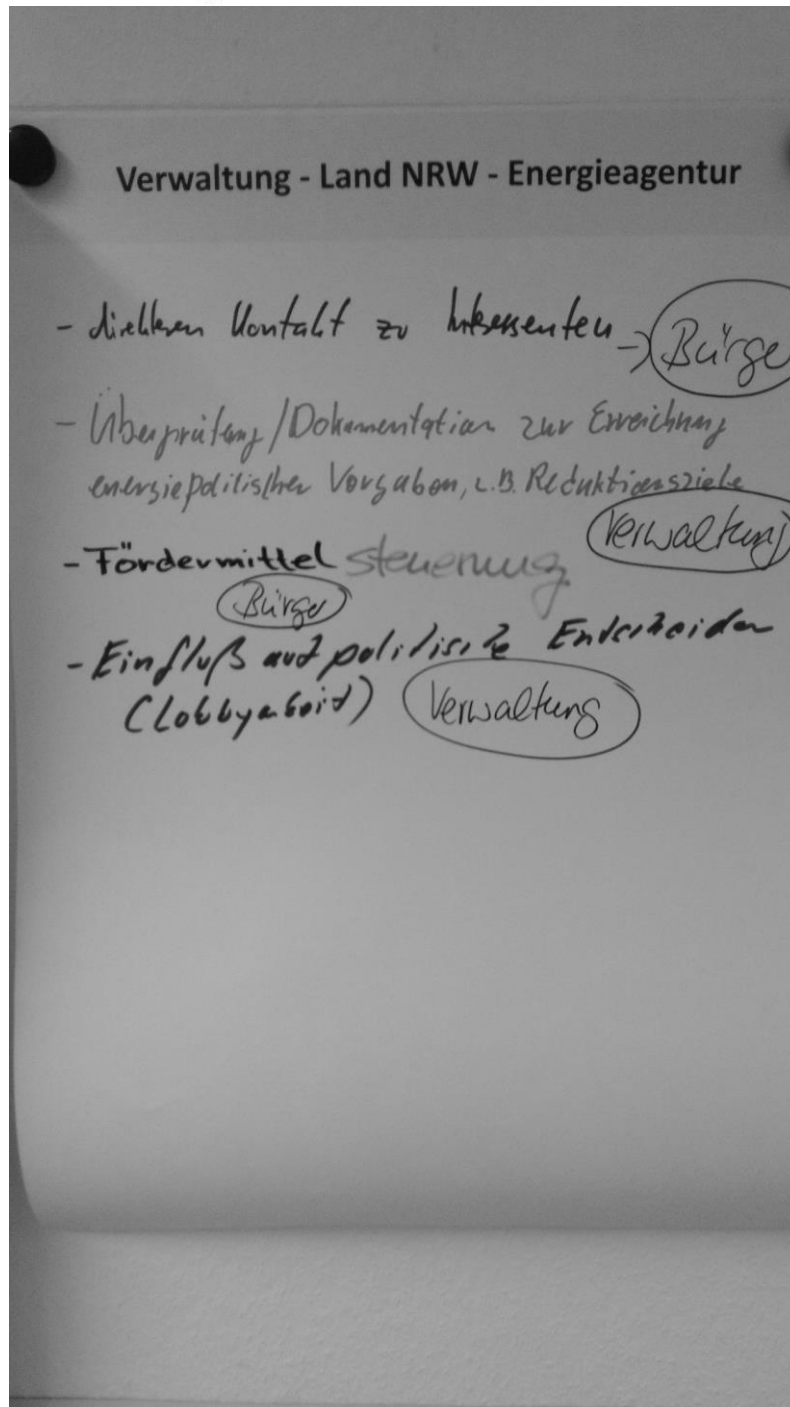 Verwaltung - Land NRW - Energieagentur
- direkteren Kontakt zu Interessenten -> Bürge
- Überprüfung/Dokumentation zur Erreichung
energiepolitischer Vorgaben, z.B. Reduktionsziele
Verwaltung
- Fördermittel steuerung
Bürger
- Einfluß auf politische Entscheider
(Lobbyarbeit) Verwaltung